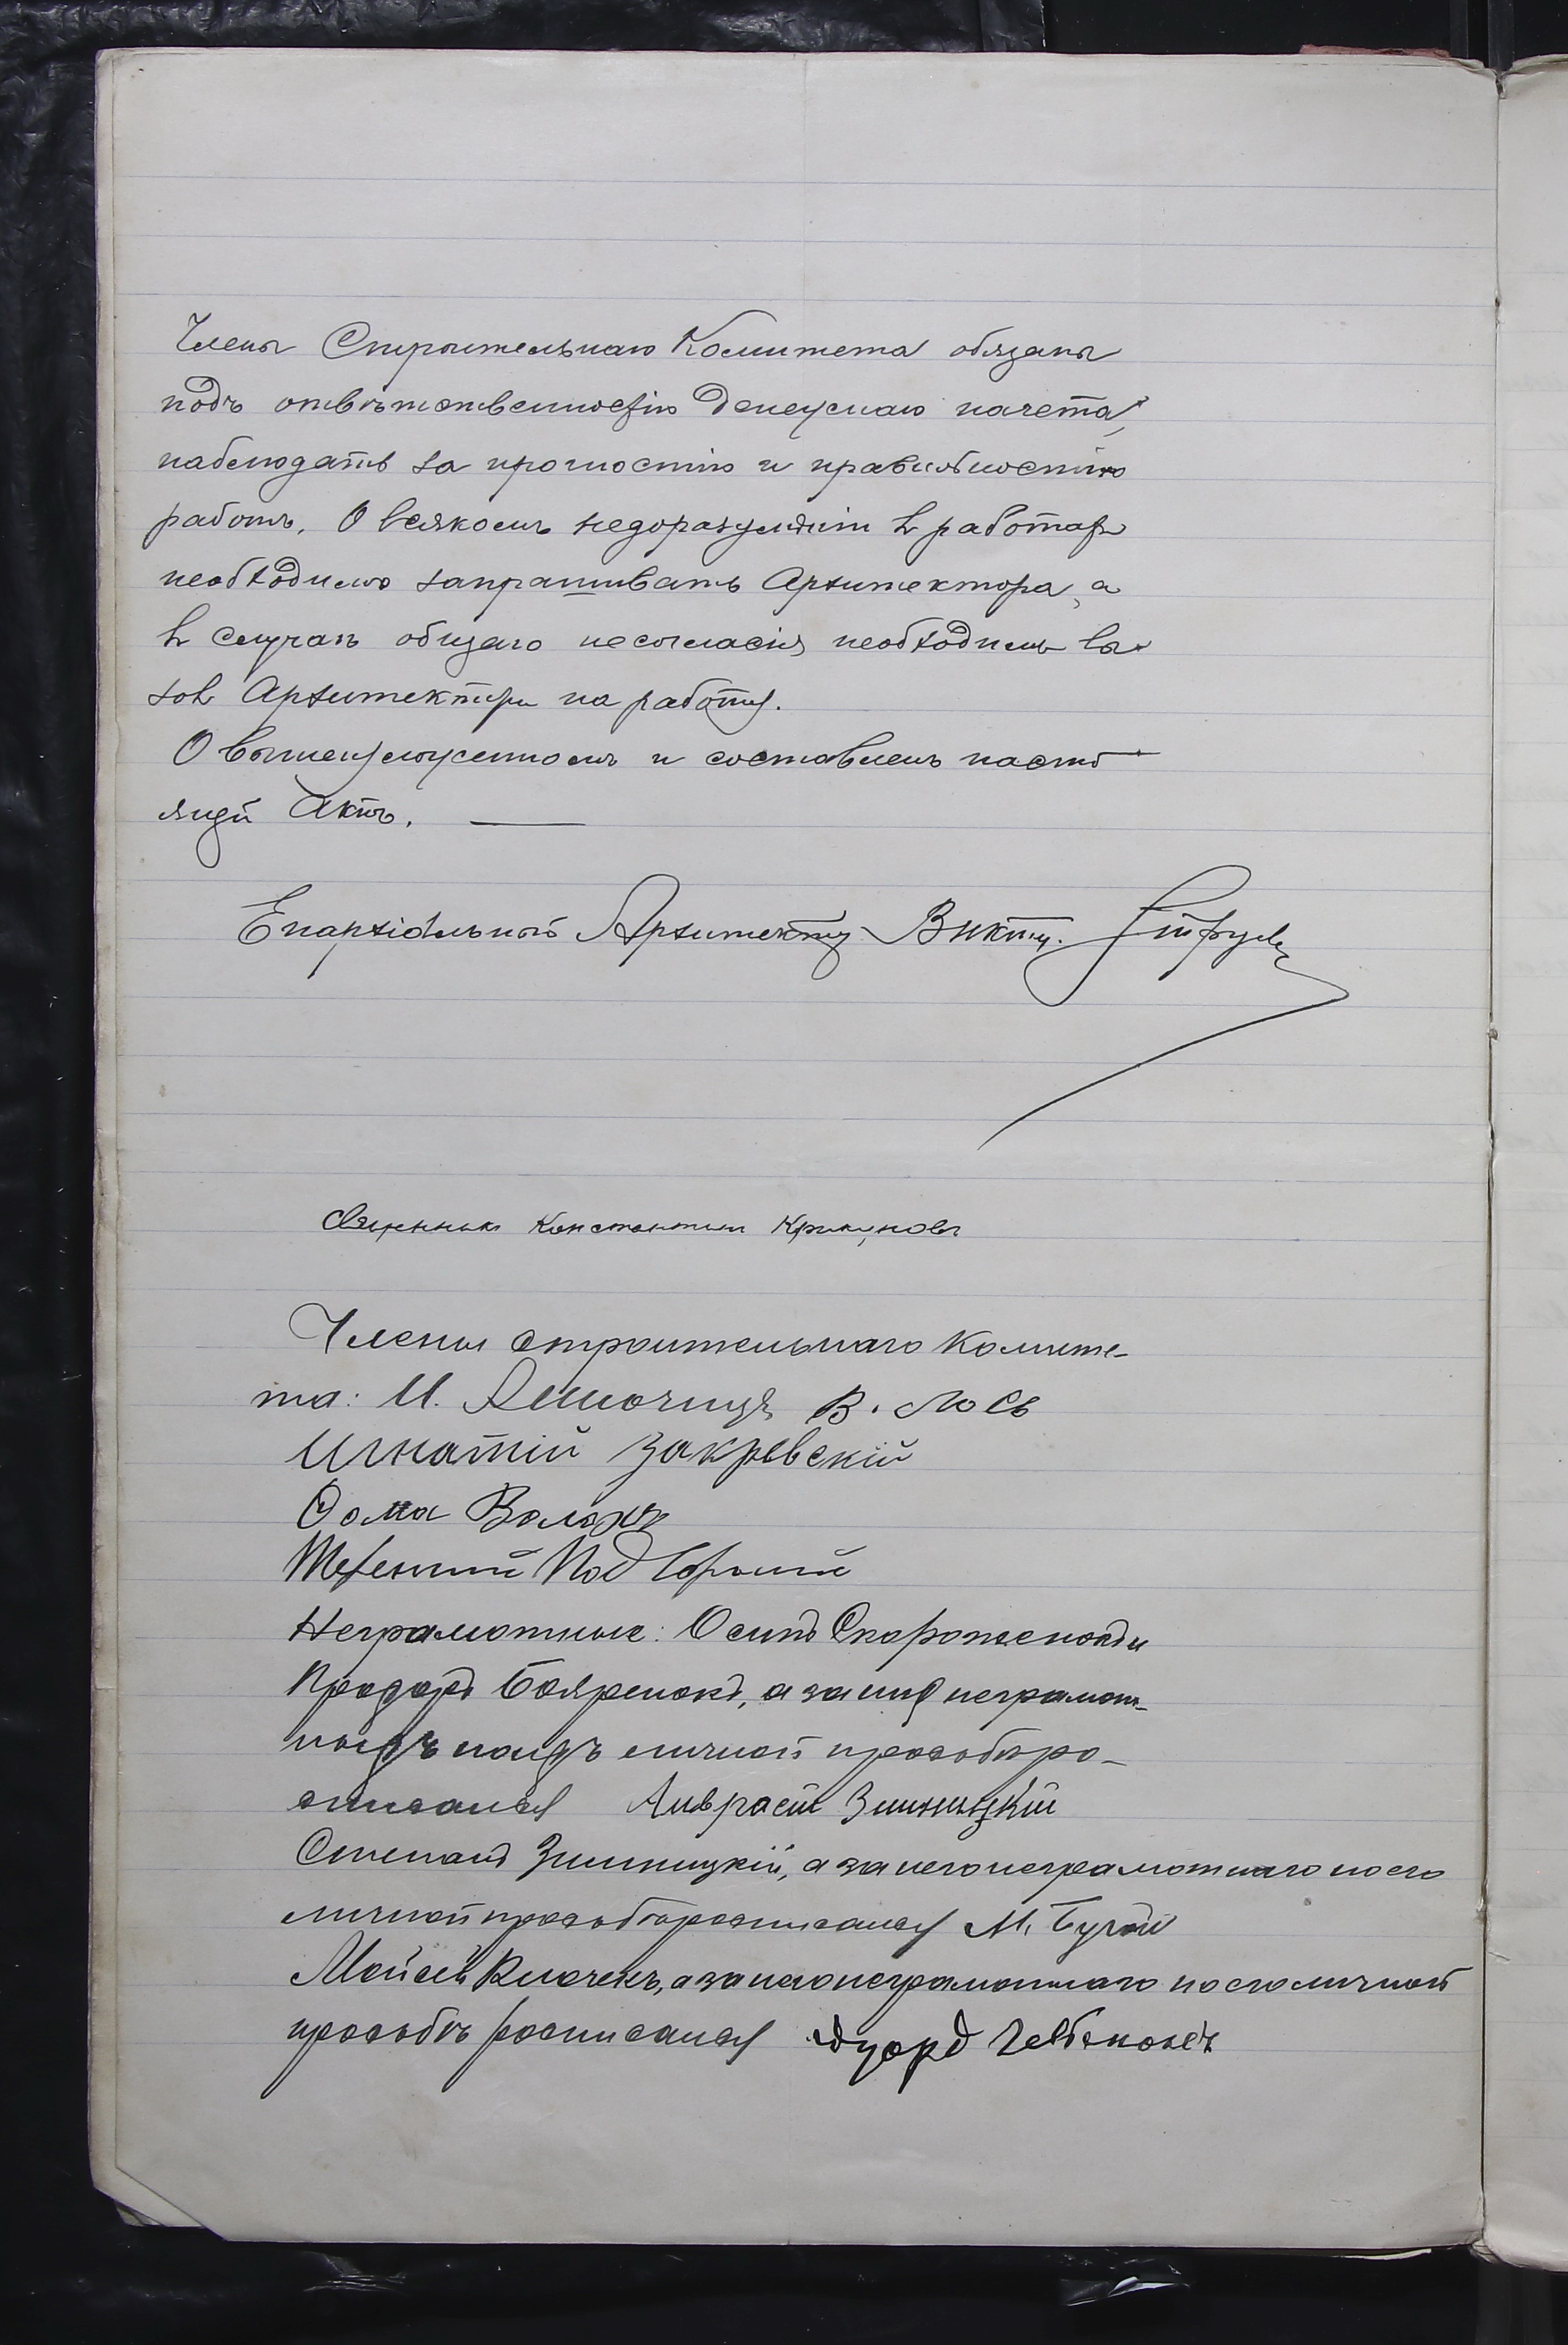 Члены Строительнаго Комитета обязаны
подъ отвѣтственностію денежнаго начета,
наблюдать за прочностію и правильностію
работъ. О всякомъ недоразумѣніи въ работахъ
необходимо запрашивать Архитектора, а
въ случаѣ общаго несогласія необходимъ вы-
зовъ Архитектора на работы.
О вышеизложенномъ и составленъ насто-
ящій Актъ.
Епархіальный Архитекторъ Викторъ Струевъ
Священникъ Константинъ Крикуновъ
Члены строительнаго Комите-
та: И. В. Лось
Игнатій Закревскій
Ѳома
Терентий
Неграмотные: Осипъ Скороженокъ и
Бояренокъ, а за нихъ неграмот-
ныхъ по ихъ личной просьбѣ ро-
списался Амвросій Зимницкій
Степанъ Зимницкій, а за него неграмотнаго по его
личной просьбѣ росписался М. Бугай
Мойсей Клочекъ, а за него неграмотнаго по его личной
просьбѣ росписался Эдуард